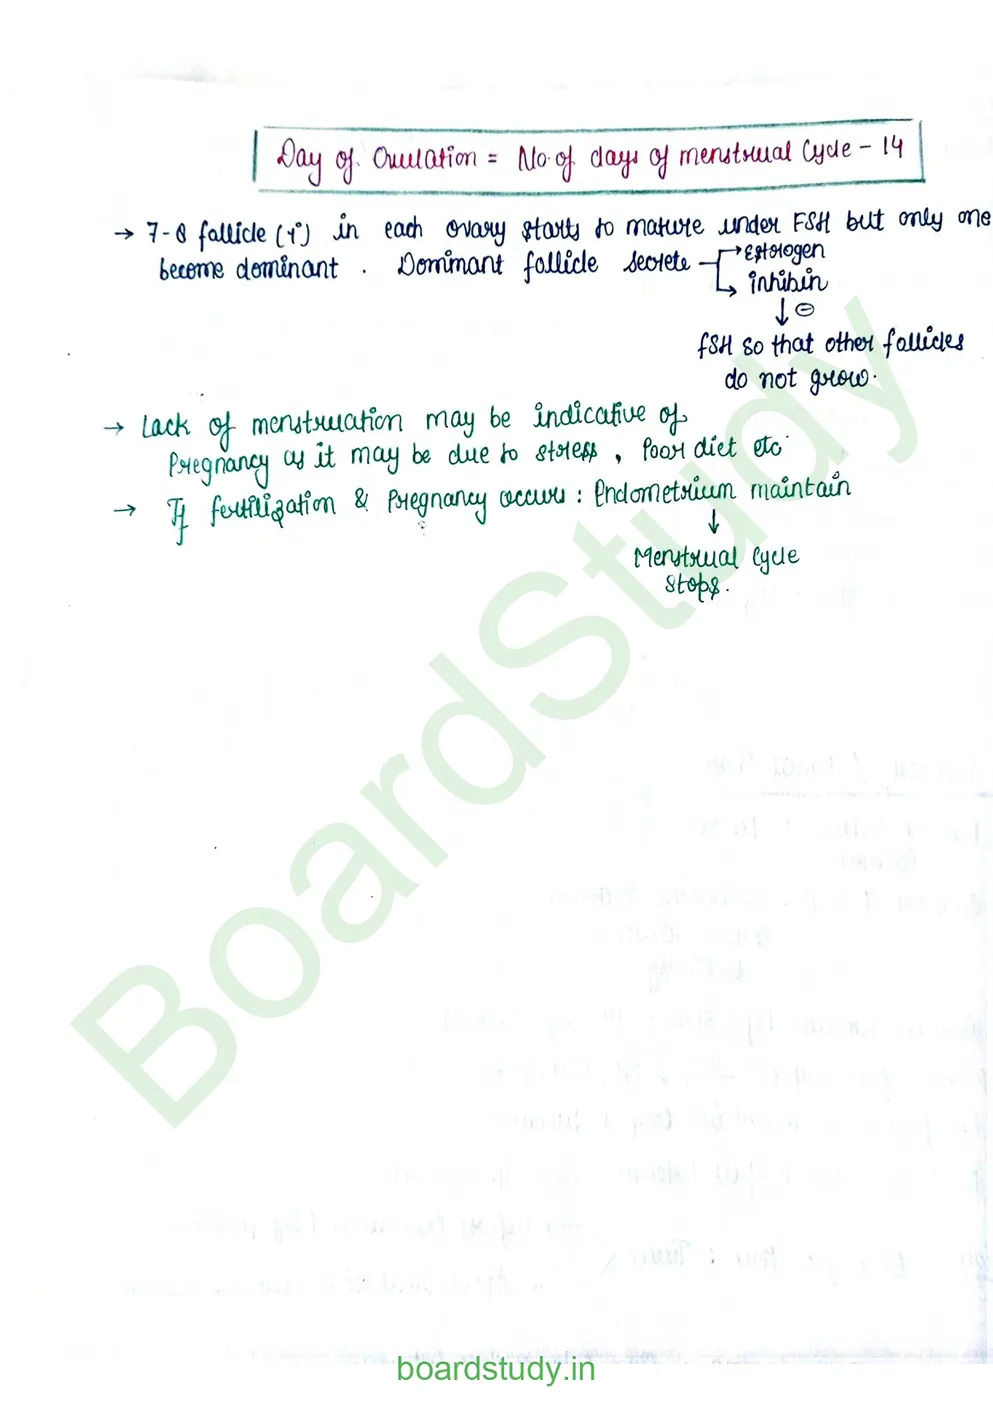 Day of Ovulation = No. of days of menstrual Cycle - 14
→ 7-8 follicle (1°) in each ovary starts to mature under FSH but only one
become dominant. Dominant follicle secrete → Estrogen
→ inhibin
↓ ⊖
FSH so that other follicles
do not grow.
→ Lack of menstruation may be indicative of
Pregnancy as it may be due to stress, Poor diet etc.
→ If fertilization & Pregnancy occurs : Endometrium maintain
↓
Menstrual Cycle
stops.
BoardStudy
boardstudy.in